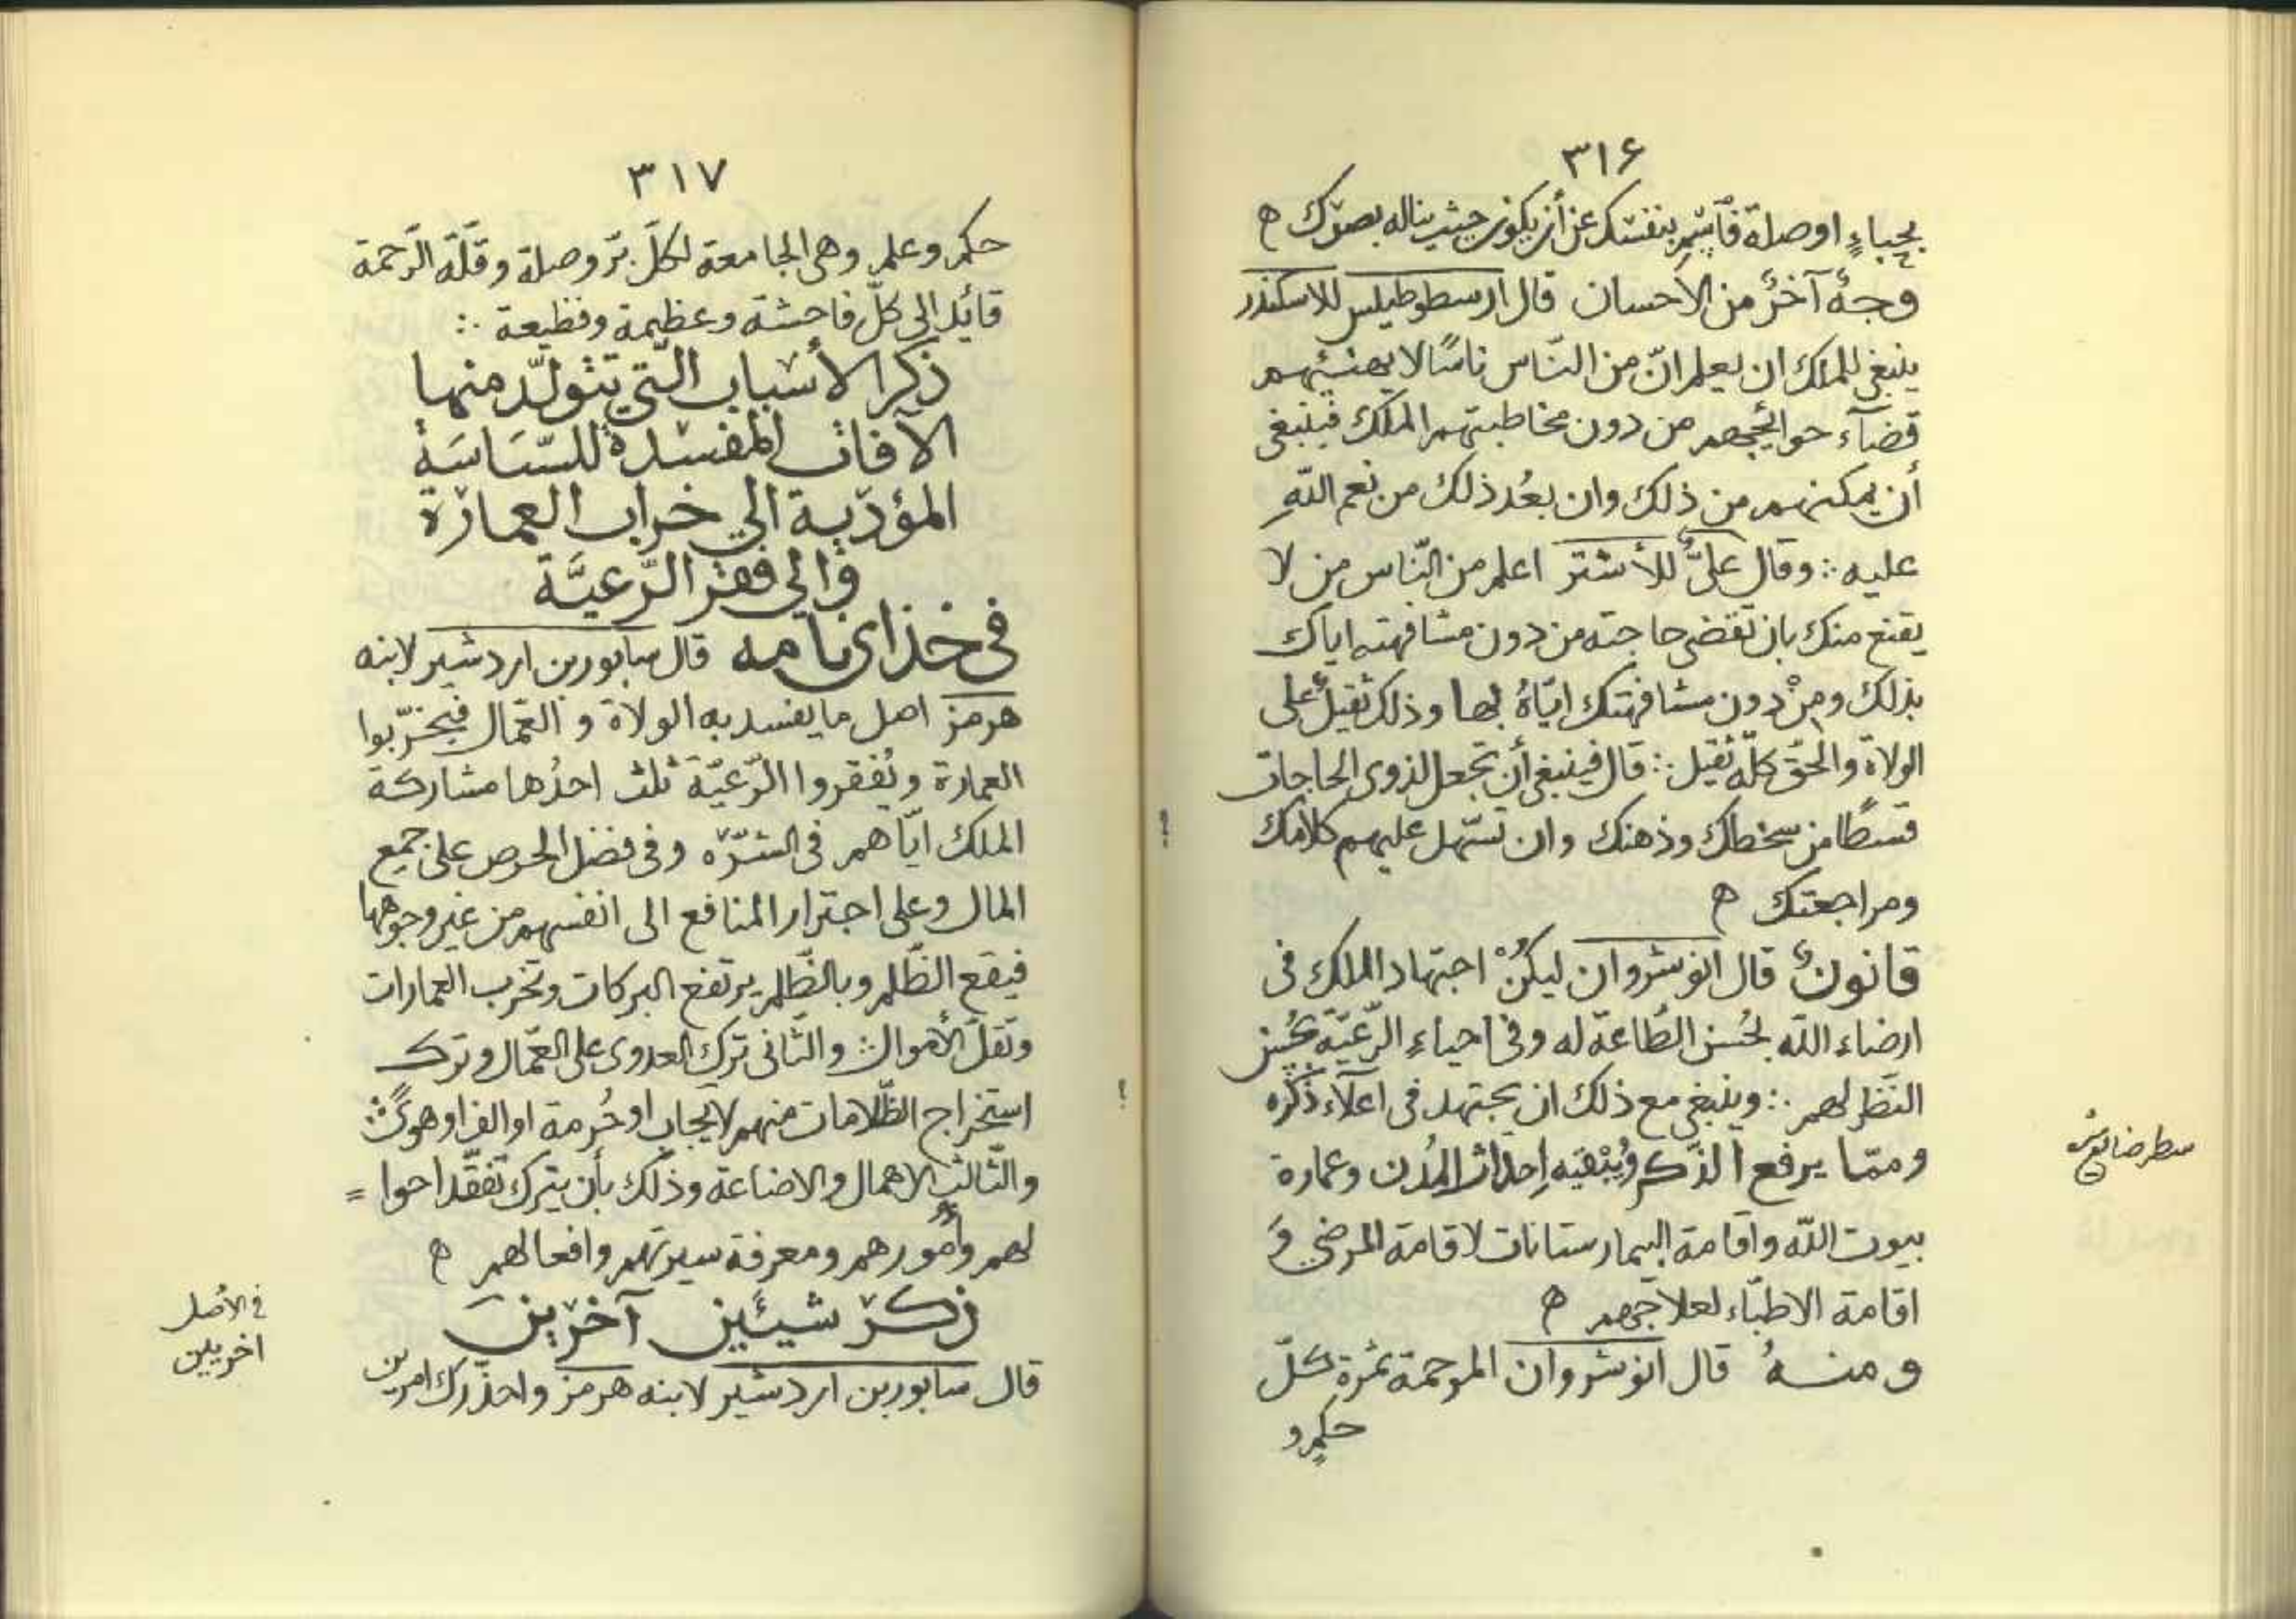 ٣١۶
بحباءٍ او صلة فأشِر بنفسك عن أن يكون حيث يناله بصرك ه
وجهٌ آخرٌ من الاحسان قال ارسطوطيلس للاسكندر
ينبغى للملك ان يعلم انّ من النّاس ناسًا لا يهنئهم
قضآء حوائجهم من دون مخاطبتهم الملك فينبغى
أن يمكنهم من ذلك وان يعُد ذلك من نعم اللّهِ
عليه ∴ وقال علىٌّ للأشتر اعلم من النّاس من لا
يقنع منك بان تقضى حاجته من دون مشافهته اياك
بذلك ومِنْ دون مشافهتك ايّاهُ بها وذلك ثقيلٌ على
الولاة والحقّ كلّه ثقيل ∴ قال فينبغى أن تجعل لذوى الحاجات
قسطًا من لحظك وذهنك وان تسّهل عليهم كلامك
ومراجعتك ه
قانونٌ قال انوشروان ليكُنْ اجتهاد الملك فى
ارضاء اللّه بحُسن الطّاعة له وفى احياء الرّعيّة بحُسن
النّظر لهم ∴ وينبغى مع ذلك ان يجتهد فى اعلآء ذكره
وممّا يرفع الذّكر ويُبْقيه إحداث المُدن وعمارة
بيوت اللّه واقامة البيمارستانات لاقامة المرضى وَ
اقامة الاطبّاء لعلاجهم ه
ومنهُ قال انوشروان المرحمة ثمرة كلّ
حكمٍ و
٣١٧
حكم وعلم وهى الجامعة لكلّ برّ وصلة وقلّة الرّحمة
قائد الى كلّ فاحشة وعظيمة وفظيعة ∴
ذكر الأسباب الّتي تتولّد منها
الآفات المفسدة للسّياسَة
المؤدّية الي خراب العمارة
والي فقر الرّعيَّة
فى خذاى نامه قال سابور بن اردشير لابنه
هرمز اصل ما يفسد به الولاة و العمّال فيخرّبوا
العمارة ويُفقروا الرّعيّة ثلث احدُها مشاركة
الملك ايّاهم فى الشّرّه وفى فضل الحرص على جميع
المال وعلى اجترار المنافع الى انفسهم من غير وجوهها
فيقع الظّلم وبالظّلم يرتفع البركات وتخرب العمارات
وتقلّ الأموال ∴ والثّانى ترك العدوى على العمّال وترك
استخراج الظّلامات منهم لايجاب او حُرمة او الف او هوىً ∴
والثّالث الاهمال والاضاعة وذلك بأن يترك تفقّد احوا =
لهم وأمورهم ومعرفة سيرتهم وافعالهم ه
ذكر شيئين آخرين
قال سابور بن اردشير لابنه هرمز واحذّرك امرين
فى الأصل
اخريين